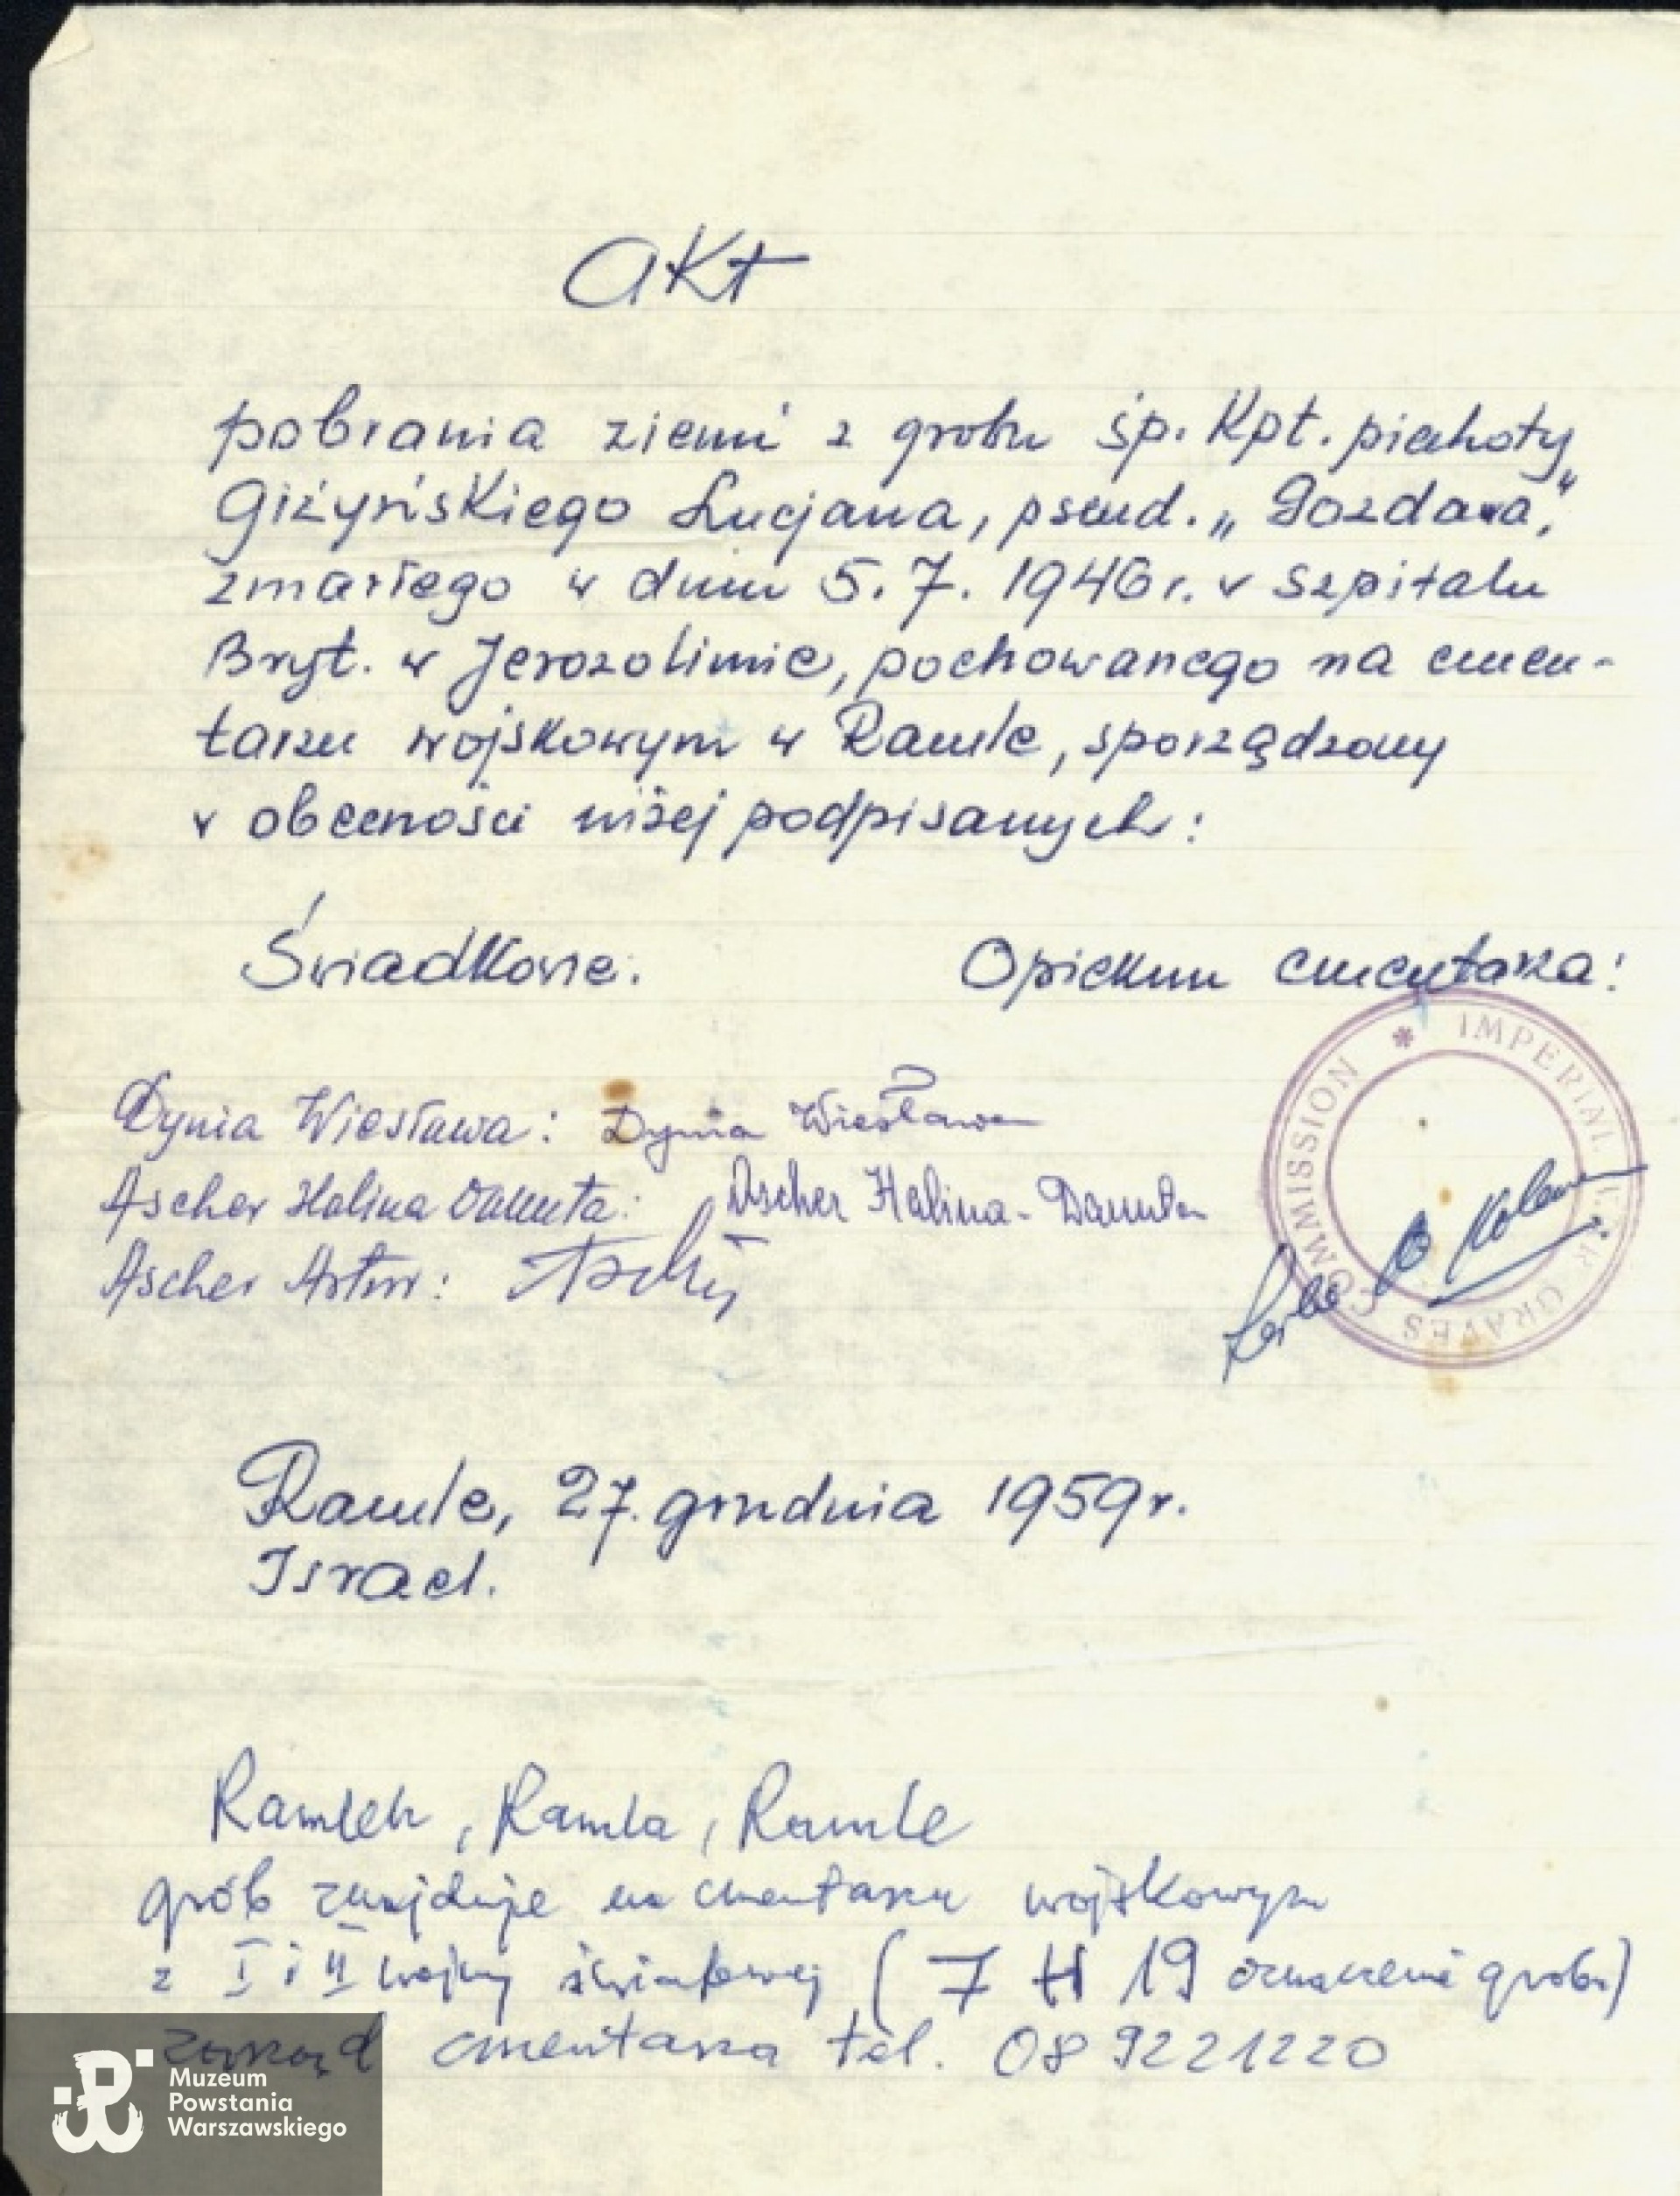 Akt
pobrania ziemi z grobu śp. Kpt. piechoty
Giżyńskiego Lucjana, pseud. „Gozdawa",
zmarłego w dniu 5.7.1946 r. w szpitalu
Bryt. w Jerozolimie, pochowanego na cmen-
tarzu wojskowym w Ramle, sporządzony
w obecności niżej podpisanych:
Świadkowie. Opiekun cmentarza:
IMPERIAL WAR GRAVES COMMISSION
Dynia Wiesława: Dynia Wiesława
Ascher Halina Danuta: Ascher Halina-Danuta
Ascher Artur:
Ramle, 27. grudnia 1959 r.
Israel.
Ramleh, Ramla, Ramle
grób znajduje na cmentarzu wojskowym
z I i II wojny światowej (7 H 19 oznaczenie grobu)
zarząd cmentarza tel. 08 9221220
Muzeum
Powstania
Warszawskiego